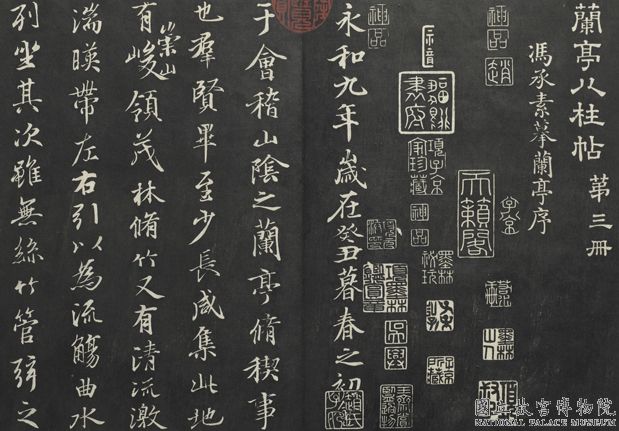 蘭亭八柱帖 第三冊
馮承素摹蘭亭序
神品
趙
子京
天籟閣
墨林山人
項子京家珍藏
神品
墨林秘玩
神品
永和九年歲在癸丑暮春之初
于會稽山陰之蘭亭脩稧事
也羣賢畢至少長咸集此地
有崇山峻領茂林脩竹又有清流激
湍暎帶左右引以為流觴曲水
列坐其次雖無絲竹管弦之
國立故宮博物院
NATIONAL PALACE MUSEUM